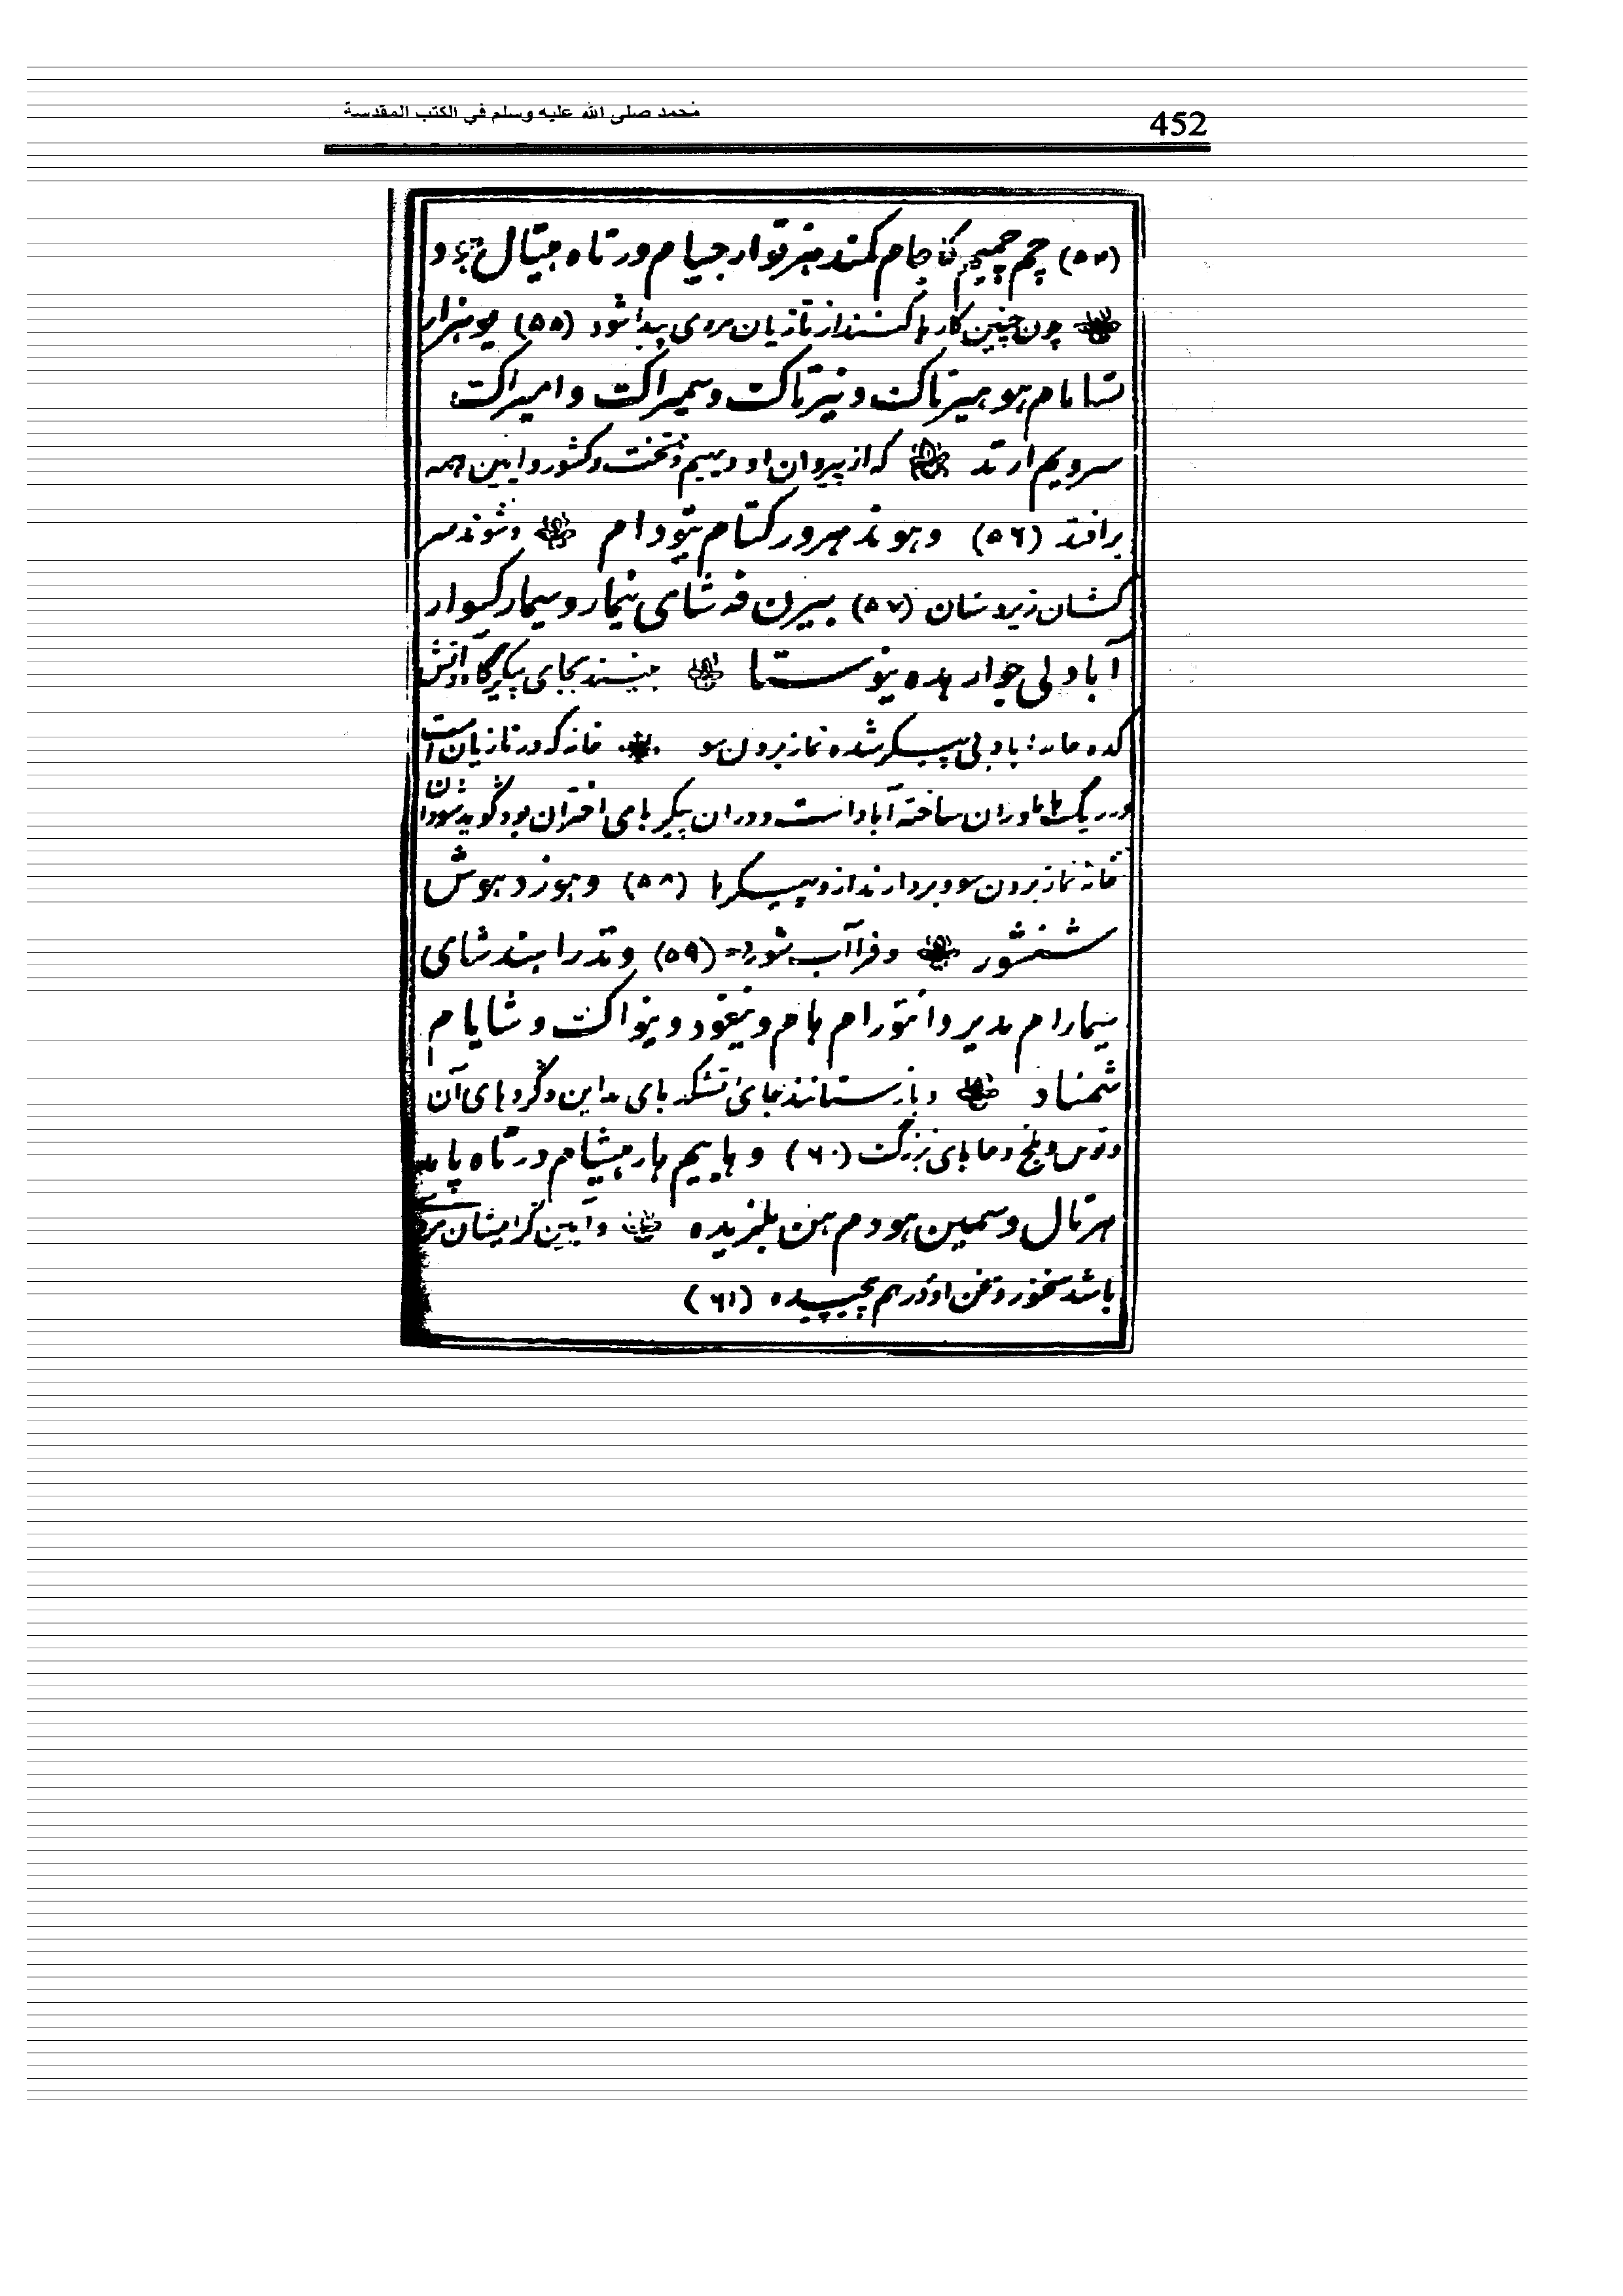 محمد صلى الله عليه وسلم في الكتب المقدسة
452
(۵۴) چم چمیم کاجام کمند هزتوار جیام ورتاه هیتال و د
چون چنین کارها کنند از تازیان مردی پیدا شود (۵۵) هو هزار
تسامام هو هیرتاک و نیرتاک و سمیراک و امیراک
سرویم ارتد که از پیروان او دیهیم و تخت و کشور و آیین همه
برافتد (۵۶) و هوند هرور کتام نیودام و شوند سر
کشان زیردستان (۵۷) بیرن فه شای تیمار و سیمار کسوار
آباد بی جوار هده نیوستا بینند بجای پیکرگاه و آتش
کده خانه آباد بی پیکر شده نماز بردن سو خانه که در تازیان است
و در ریگ هاماوران ساخته آباد است و در ان پیکر های اختران بود گوید شود آن
خانه نماز بردن سو و بردارند از و پیکر ها (۵۸) و هوزد هوش
شنشور و فراآب شور (۵۹) و تدرا بند شای
سیمارام مدیر و انتورام هام و نیغود و نیواک و شایام
شمناد و باز ستانند جای آتشکدهای مداین و گردهای آن
و توس و بلخ و جاهای بزرگ (۶۰) و هاییم هار هیشام ورتاه پامد
هرتال و سمین هودم هن بلزیده و آیین گر ایشان مردی
باشد سخنور و سخن او درهم پیچیده (۶۱)